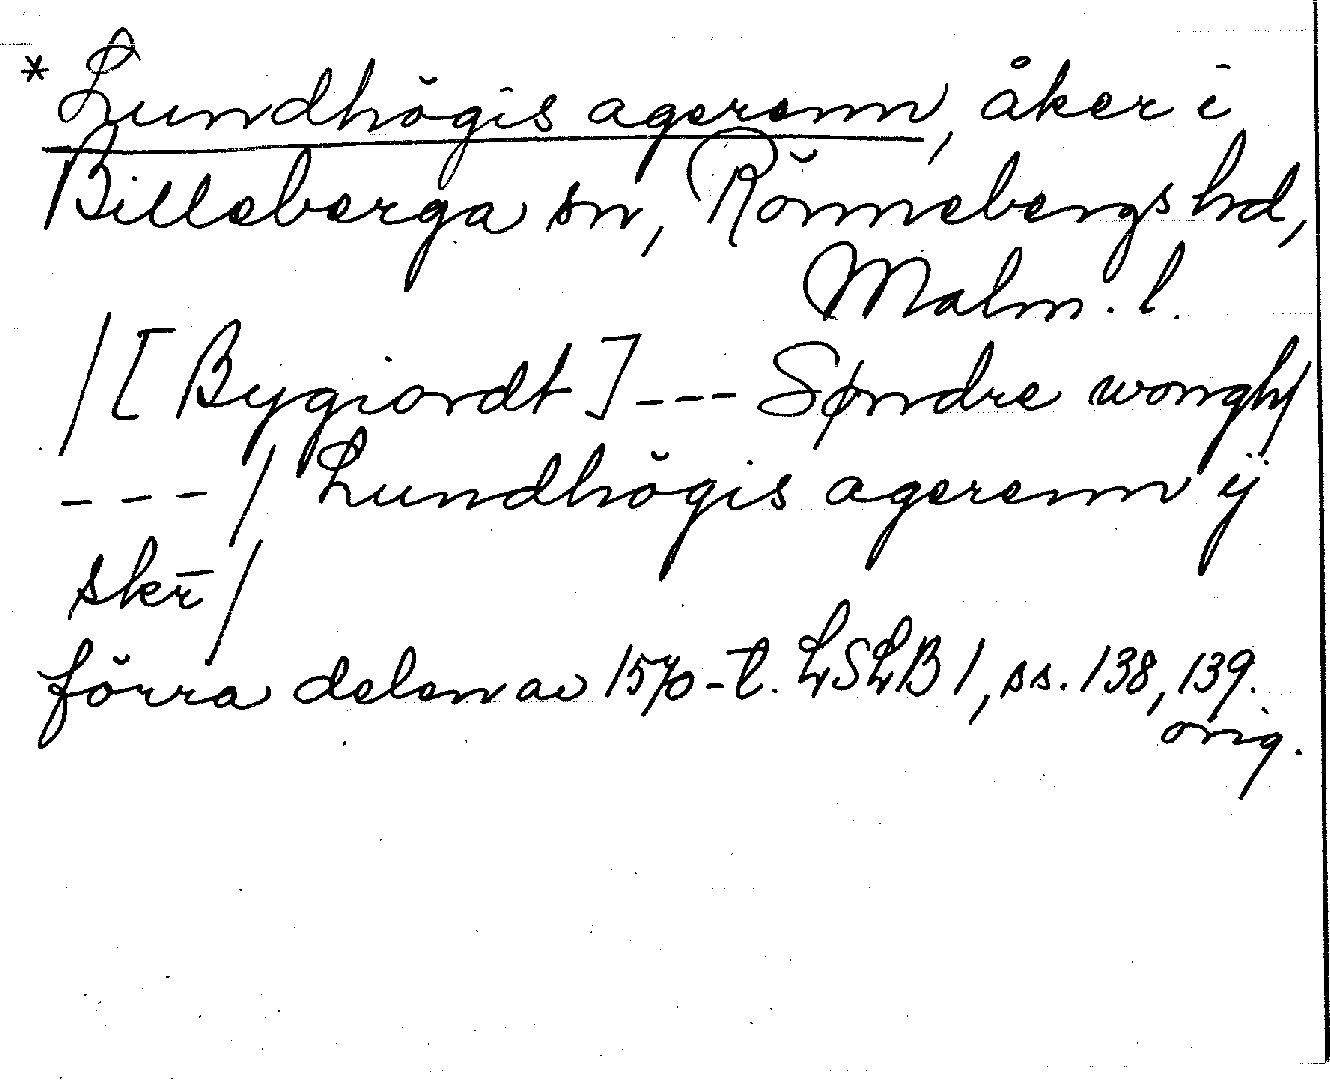 * Lundhögis agerenn, åker i
Billeberga sn, Rönnebergs hd,
Malm. l.
/[Bygiordt] --- Søndre wongh/
---/ Lundhögis agerenn ij
skr̄/
förra delen av 1570-t. LSLB 1, ss. 138, 139.
orig.